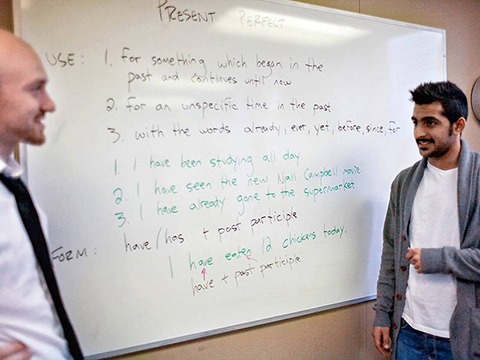 PRESENT PERFECT
USE: 1. for something which began in the
past and continues until now
2. for an unspecific time in the past
3. with the words already, ever, yet, before, since, for
1. I have been studying all day
2 I have seen the new Neil Campbell movie.
3. I have already gone to the supermarket
FORM: have/has + past participle
I have eaten 12 chickens today.
have + past participle